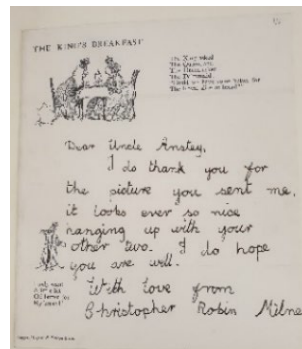 THE KING'S BREAKFAST
The King asked
The Queen, and
Dear Uncle Anstey,
I do thank you for
the picture you sent me,
it looks ever so nice
hanging up with your
other two. I do hope
you are well.
With love from
Christopher Robin Milne